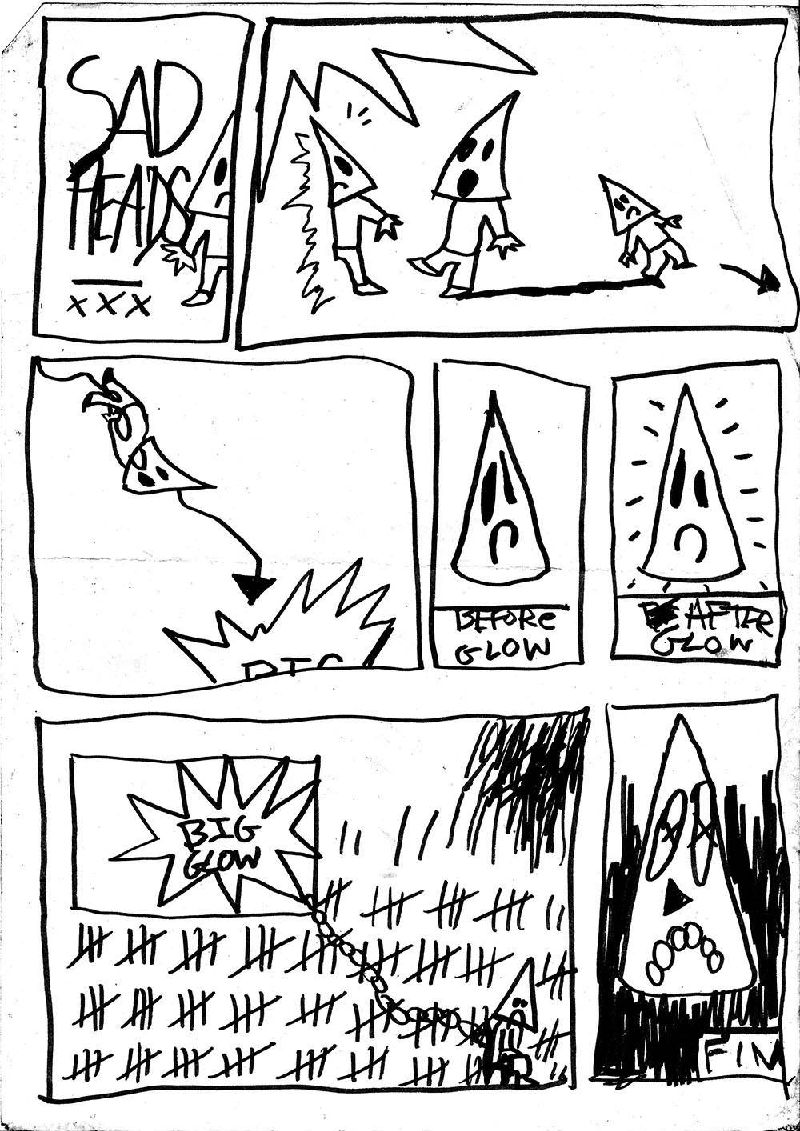 SAD
HEADS
XXX
BIG
BEFORE
GLOW
AFTER
GLOW
BIG
GLOW
FIN